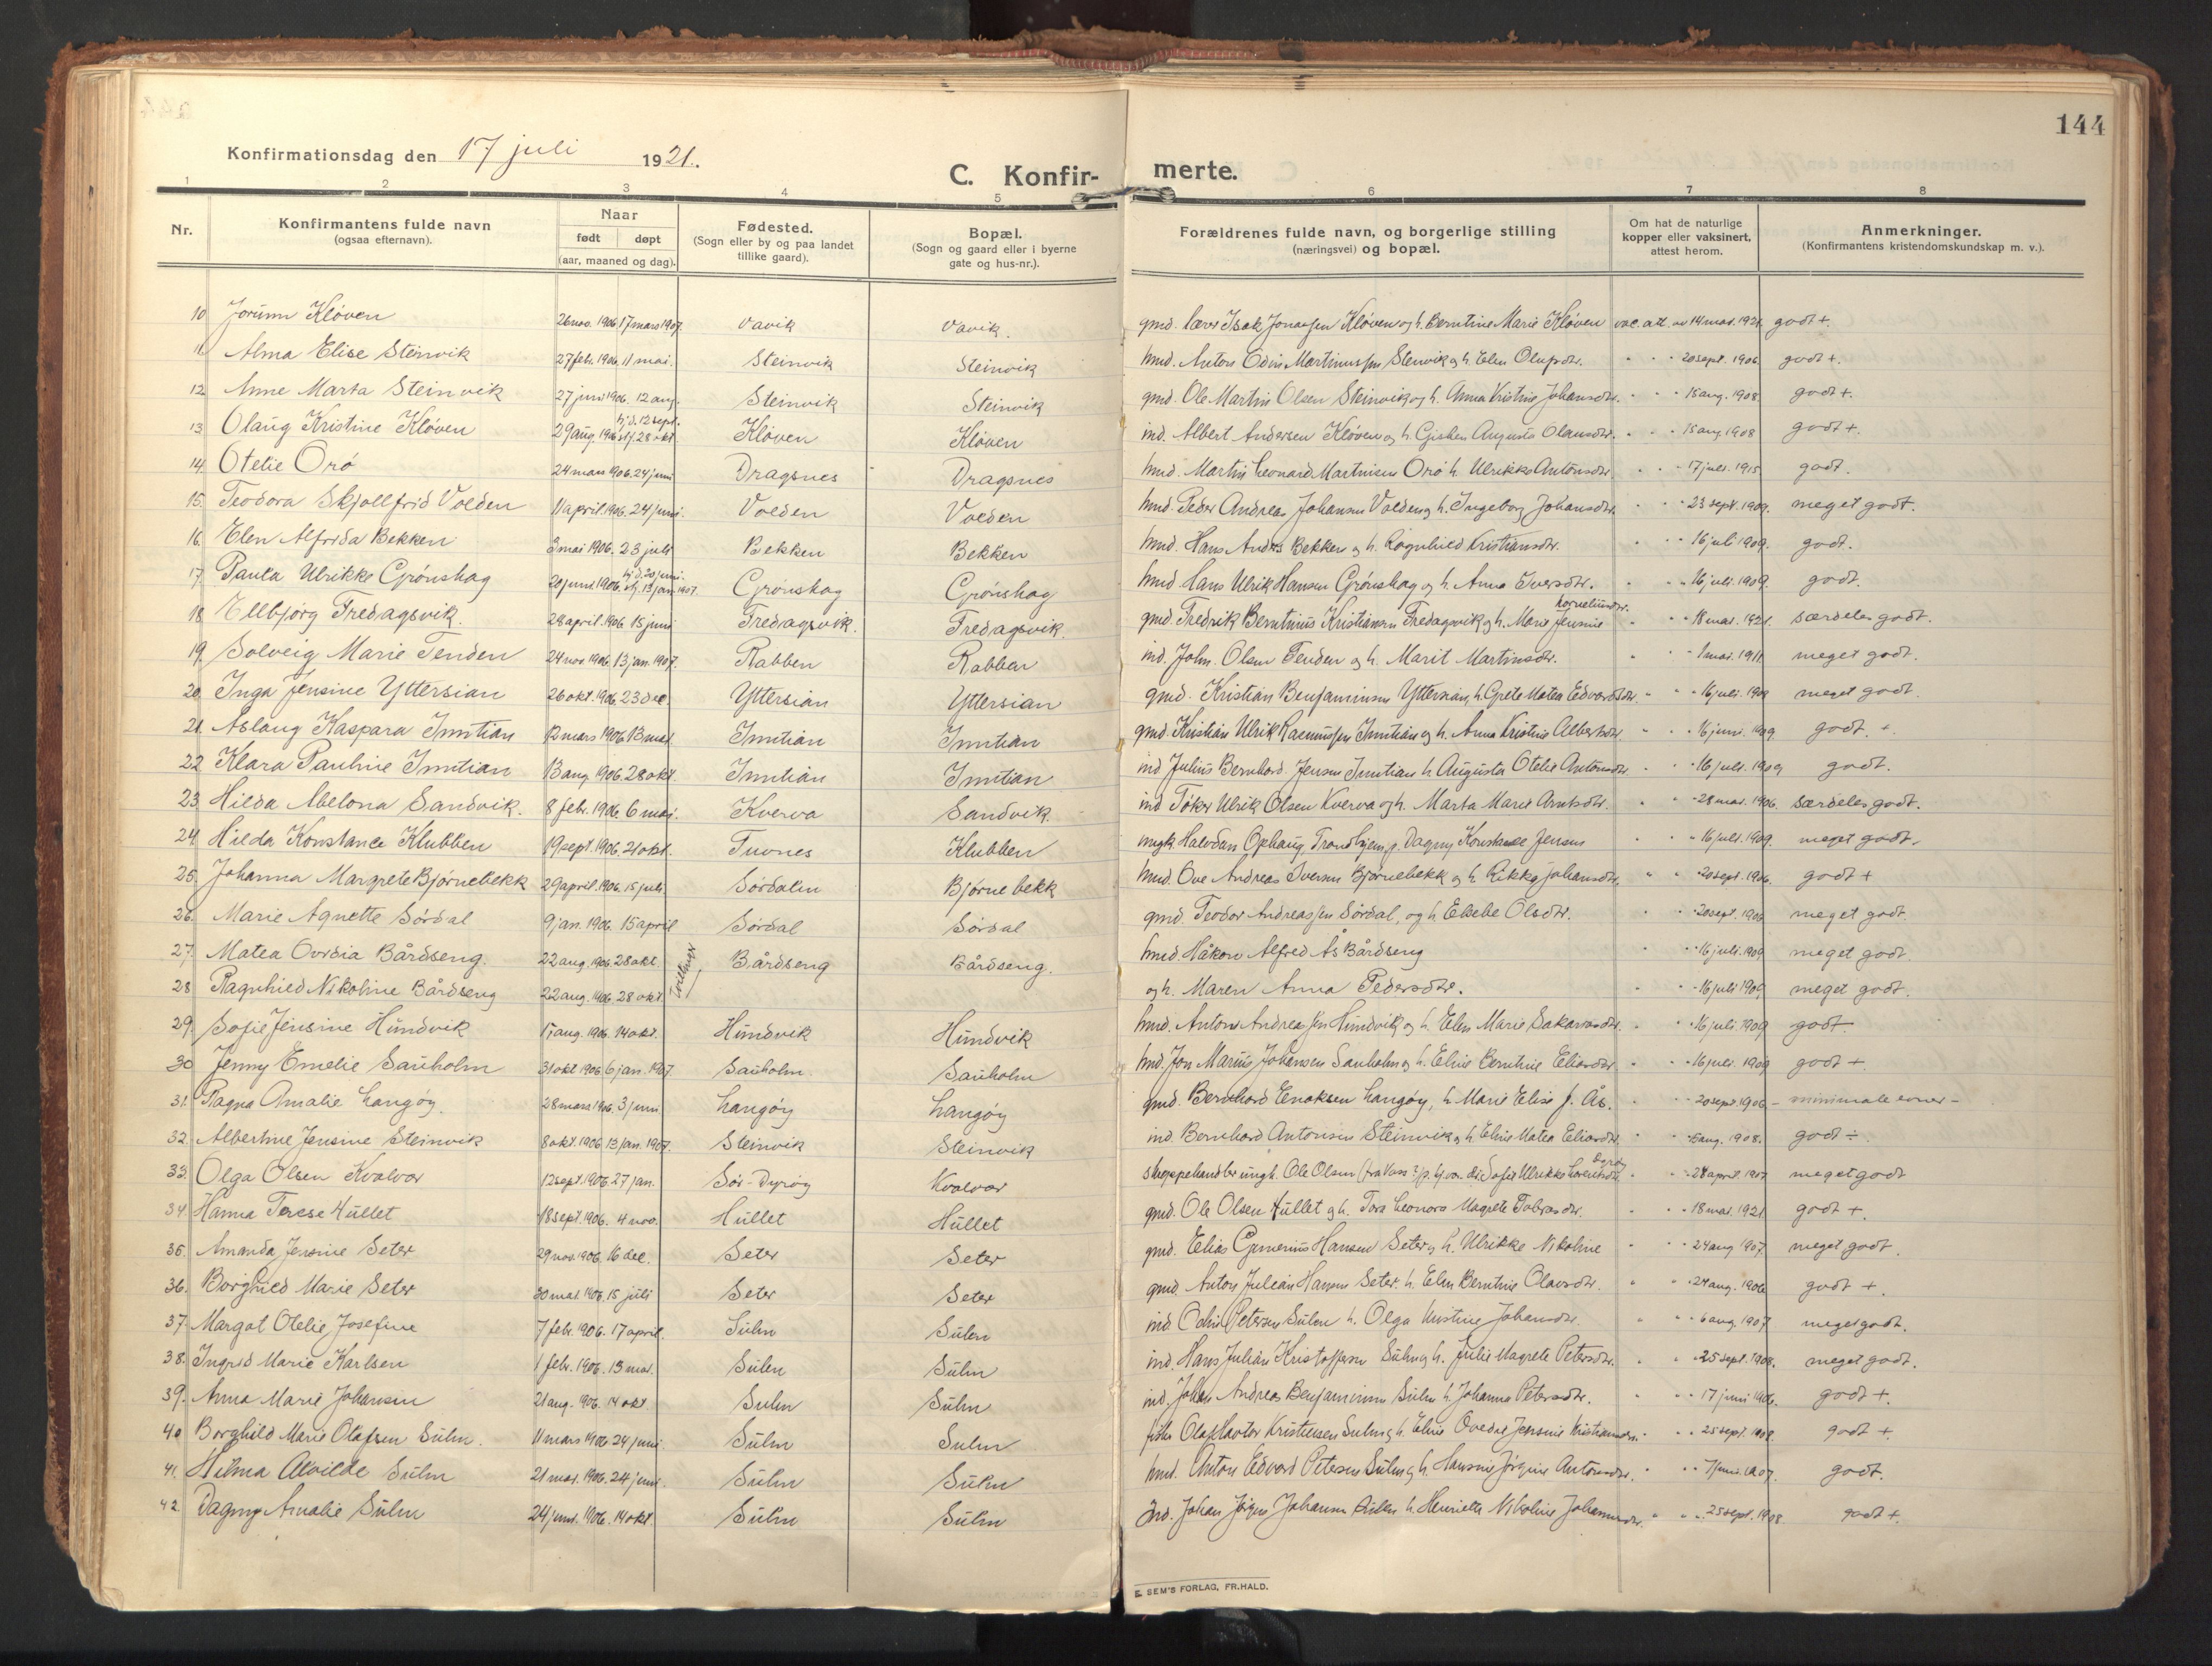 144
Konfirmationsdag den 17 juli 1921.
C. Konfir- merte.
1 2 3 4 5 6 7 8
Nr.
Konfirmantens fulde navn
(ogsaa efternavn).
Naar
født døpt
(aar, maaned og dag).
Fødested.
(Sogn eller by og paa landet
tillike gaard).
Bopæl.
(Sogn og gaard eller i byerne
gate og hus-nr.).
Forældrenes fulde navn, og borgerlige stilling
(næringsvei) og bopæl.
Om hat de naturlige
kopper eller vaksinert,
attest herom.
Anmerkninger.
(Konfirmantens kristendomskundskap m. v.).
10 Jorunn Kløven 26 nov. 1906 17 mars 1907. Vavik Vavik. gmd. lærer Isak Kløven og h. Berntine Marie Kløven vac. att. av 14 mai. 1921. godt +.
11. Alma Elise Steinvik 27 febr. 1906. 11 mai. Steinvik Steinvik hmd. Anton Odin Martinussen Stenvik og h. Elen Olufsdtr. " " " 20 sept. 1906. godt +.
12. Anne Marta Steinvik 27 juni 1906. 12 aug. Steinvik Steinvik gmd. Ole Martin Olsen Steinvik og h. Anna Kristine Johansdtr. " " " 15 aug. 1908 godt +.
13. Olaug Kristine Kløven 29 aug. 1906 hj.d. 12 sept. stf. 28 okt Kløven Kløven ind. Albert Andersen Kløven og h. Augusta Olausdtr. " " " 15 aug 1908 godt +.
14. Otelie Orø 24 mars 1906. 24 juni Dragsnes Dragsnes hmd. Martin Leonard Martinsen Orø h. Ulrikke Antonsdtr. " " " 17 juli. 1915 godt.
15. Teodora Skjollfrid Volden 11 april 1906. 24 juni. Volden Volden hmd. Peder Andreas Johansen Volden og h. Ingeborg Johansdtr. " " " 23 sept. 1909. meget godt.
16. Elen Alfrida Bekken 3 mai 1906. 23 juli Bekken Bekken hmd. Hans Anders Bekken og h. Ragnhild Kristiansdtr. " " " 16 juli 1909. godt.
17. Paula Ulrikke Grønskag 20 juni 1906. hj.d. 20 juni. stf. 13 jan 1907. Grønskag Grønskag hmd Hans Ulrik Hansen Grønskag og h. Anna Iversdtr. " " 16 juli. 1909. godt.
18. Ellbjørg Fredagsvik. 28 april. 1906 15 juni Fredagsvik. Fredagsvik. gmd. Fredrik Berntinus Kristiansen Fredagsvik og h. Marie Jensine Korneliusdtr. " " " 18 mai. 1921. særdeles godt.
19. Solveig Marie Tenden 24 nov 1906. 13 jan. 1907. Rabben Rabben ind. John. Olsen Tenden og h. Marit Martinsdtr. " " " 1 mai. 1911 meget godt.
20. Inga Jensine Yttersian 26 okt. 1906. 23 dec. Yttersian Yttersian gmd. Kristian Benjaminsen Yttersian, h. Grete Matea Edvardsdtr. " " " 16 juli. 1909 meget godt.
21. Aslaug Kaspara Inntian 12 mars 1906 13 mai. Inntian Inntian gmd. Kristian Ulrik Rasmussen Inntian og h. Anna Kristine Albertsdtr. " " " 16 juni. 1909 godt. +.
22 Klara Pauline Inntian 13 aug. 1906. 28 okt. Inntian Inntian ind Julius Bernhard Jensen Inntian h. Augusta Otelie Antonsdtr. " " " 16 juli. 1909 godt.
23. Hilda Abelona Sandvik. 8 febr. 1906. 6 mai. Kverva Sandvik. ind Tøker Ulrik Olsen Kverva og h. Marta Marie Arntsdtr. " " " 28 mai. 1906. særdeles godt.
24. Hilda Konstance Klubben 19 sept. 1906. 21 okt. Tuvnes Klubben ungk Halvdan Ophaug, Trondhjem, p. Dagny Konstanse Jensen " " " 16 juli. 1909. meget godt.
25. Johanna Margrete Bjørnebekk 29 april. 1906. 15 juli. Sørdalen Bjørnebekk hmd. Ove Andreas Iversen Bjørnebekk og h. Rikka Johansdtr. " " 20 sept. 1906. godt +
26. Marie Agnette Sørdal 9 jan. 1906. 15 april Sørdal Sørdal gmd. Teodor Andreassen Sørdal, og h. Elsebe Olsdtr. " " " 20 sept. 1906 meget godt.
27. Matea Ovidia Bårdseng. 22 aug. 1906. 28 okt. tvillinger Bårdseng Bårdseng. hmd. Håkon Alfred Ås Bårdseng " " 16 juli. 1909 meget godt.
28 Ragnhild Nikoline Bårdseng 22 aug. 1906. 28 okt. og h. Maren Anna Pedersdtr. " " " 16 juli 1909 meget godt.
29. Sofie Jensine Hundvik 17 aug. 1906. 14 okt. Hundvik Hundvik hmd. Anton Andreassen Hundvik og h. Elen Marie Sakariasdtr. " " 16 juli. 1909 godt
30 Jenny Emelie Sauholm 31 okt 1906 6 jan. 1907. Sauholm. Sauholm hmd Jon Marius Johansen Sauholm og h. Eline Berntine Eliasdtr. " " 16 juli. 1909 godt +
31. Ragna Amalie Langøy. 28 mars 1906. 3 juni Langøy Langøy gmd. Bernhard Enoksen Langøy, h. Marie Elise f. Ås. " " 20 sept. 1906 - minimale evner -
32. Albertine Jensine Steinvik 8 okt. 1906 13 jan. 1907. Steinvik Steinvik ind. Bernhard Antonsen Steinvik og h. Eline Matea Eliasdtr. " " 15 aug. 1908. godt ÷.
33. Olga Olsen Kvalvær 12 sept. 1906. 27 jan. Sør-Dyrøy Kvalvær ungk. Ole Olsen (fra Voss?) Sofie Ulrikke Dyrøy " " " 28 april. 1907 meget godt
34. Hanna Terese Hullet 18 sept. 1906. 4 nov. Hullet Hullet gmd. Ole Olsen Hullet og h. Tora Leonora Magrete Tobiasdtr. " " " 18 mai. 1921 godt +.
35. Amanda Jensine Seter 29 nov. 1906. 16 dec. Seter Seter gmd. Elias Hansen Seter og h. Ulrikke Nikoline " " " 24 aug 1907. meget godt.
36. Borghild Marie Seter 30 mai. 1906. 15 juli Seter Seter gmd. Anton Julian Hansen Seter. h. Elen Berntine Olausdtr. " " " 24 aug. 1906 godt +.
37. Margot Otelie Josefine 7 febr. 1906. 17 april. Sulen Sulen ind. Odin Petersen Sulen h. Olga Kristine Johansdtr. " " " 6 aug. 1907 meget godt.
38. Ingrid Marie Karlsen 1 febr. 1906. 13 mai. Sulen Sulen ind. Hans Julian Kristoffersen Sulen og h. Julie Magrete Petersdtr. " " 25 sept. 1908. meget godt.
39. Anna Marie Johansen 21 aug. 1906. 14 okt. Sulen Sulen ind. Johan Andreas Benjaminsen Sulen h. Johanna Petersdtr. " " " 17 juni 1906. godt +.
40 Borghild Marie Olafsen Sulen. 11 mars 1906 24 juni Sulen Sulen fisker Olaf Kristensen Sulen og h. Eline Ovedie Jensine Kristiansdtr. " " 25 sept. 1908. godt +.
41. Hilma Alvilde Sulen 21 mai. 1906. 24 juni. Sulen Sulen hmd. Anton Edvard Petersen Sulen og h. Hansine Jørgine Antonsdtr. " " 7 juni. 1907. godt.
42. Dagny Amalie Sulen 24 juni. 1906. 14 okt. Sulen Sulen Ind. Johan Jørgen Johansen Sulen h. Henriette Nikoline Johannesdtr. " " " 25 sept. 1908. godt +.
E. SEM'S FORLAG, FR.HALD.